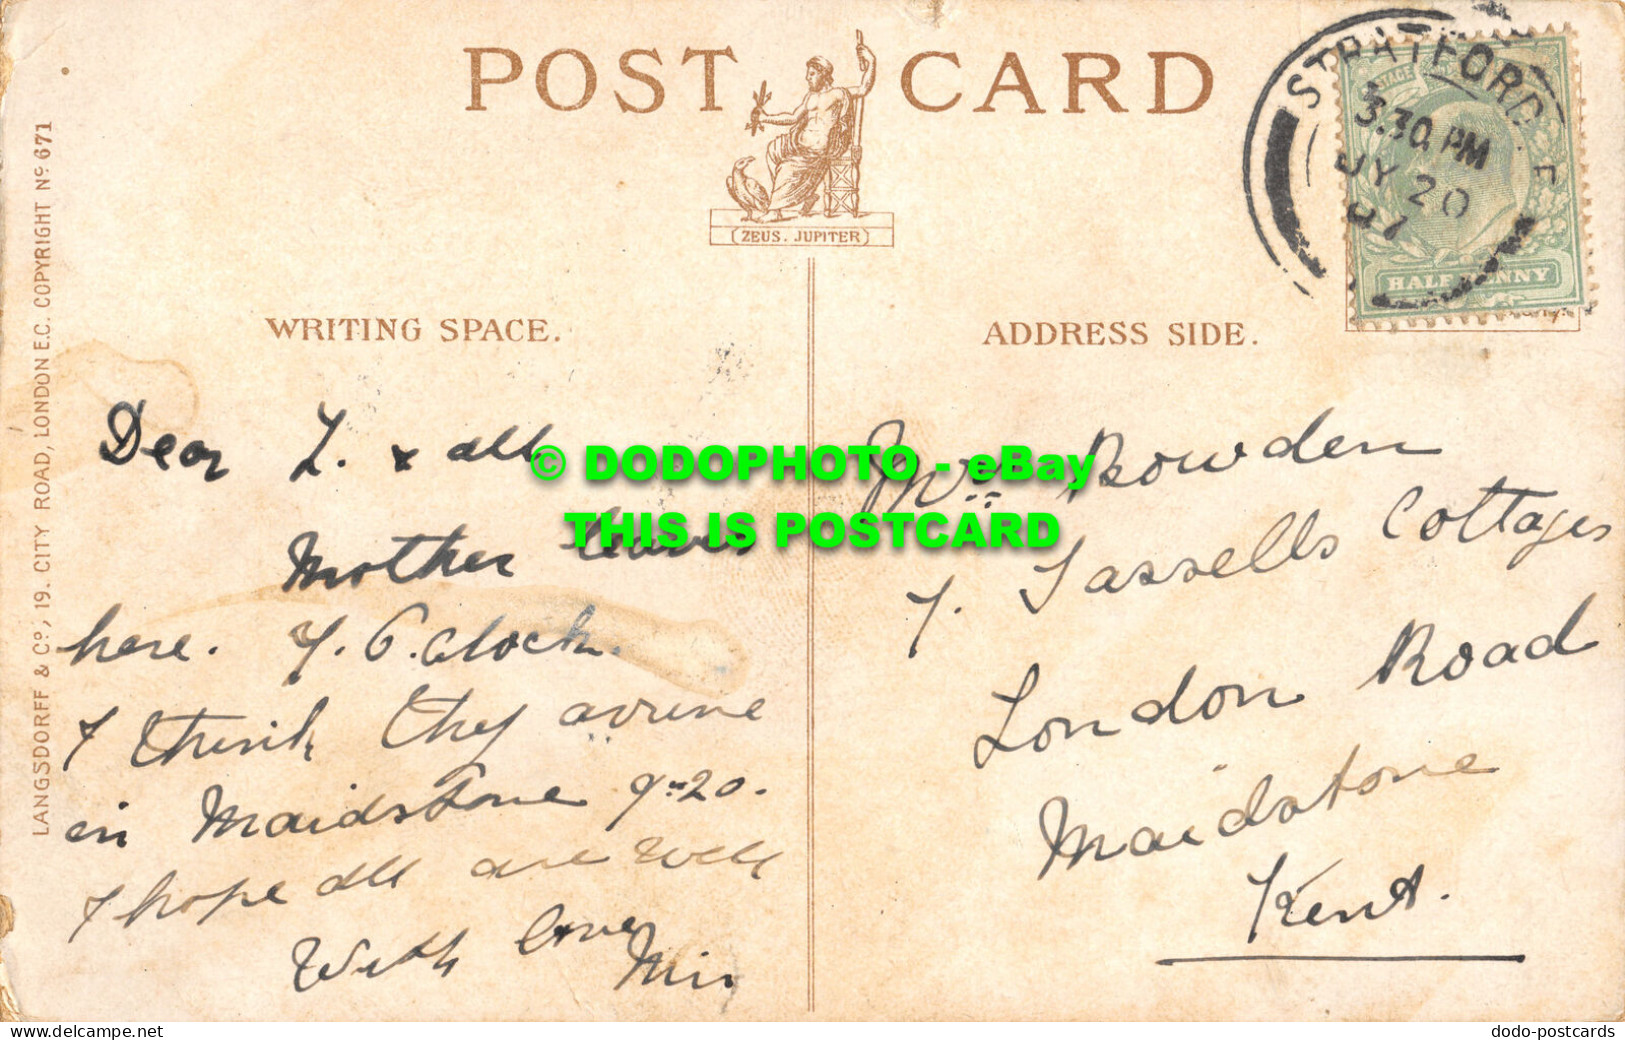 POST CARD
(ZEUS. JUPITER)
STRATFORD E
3.30 PM
JY 20
07
HALFPENNY
LANGSDORFF & Cº, 19. CITY ROAD, LONDON E.C. COPYRIGHT Nº 671
WRITING SPACE.
ADDRESS SIDE.
Dear L. & all
Mother leaves
here. 7. O.Clock.
I think they arrive
in Maidstone 9-20.
I hope all are well
With love
Min
Mrs Bowden
7. Tassells Cottages
London Road
Maidstone
Kent.
© DODOPHOTO - eBay
THIS IS POSTCARD
delcampe.net
dodo-postcards